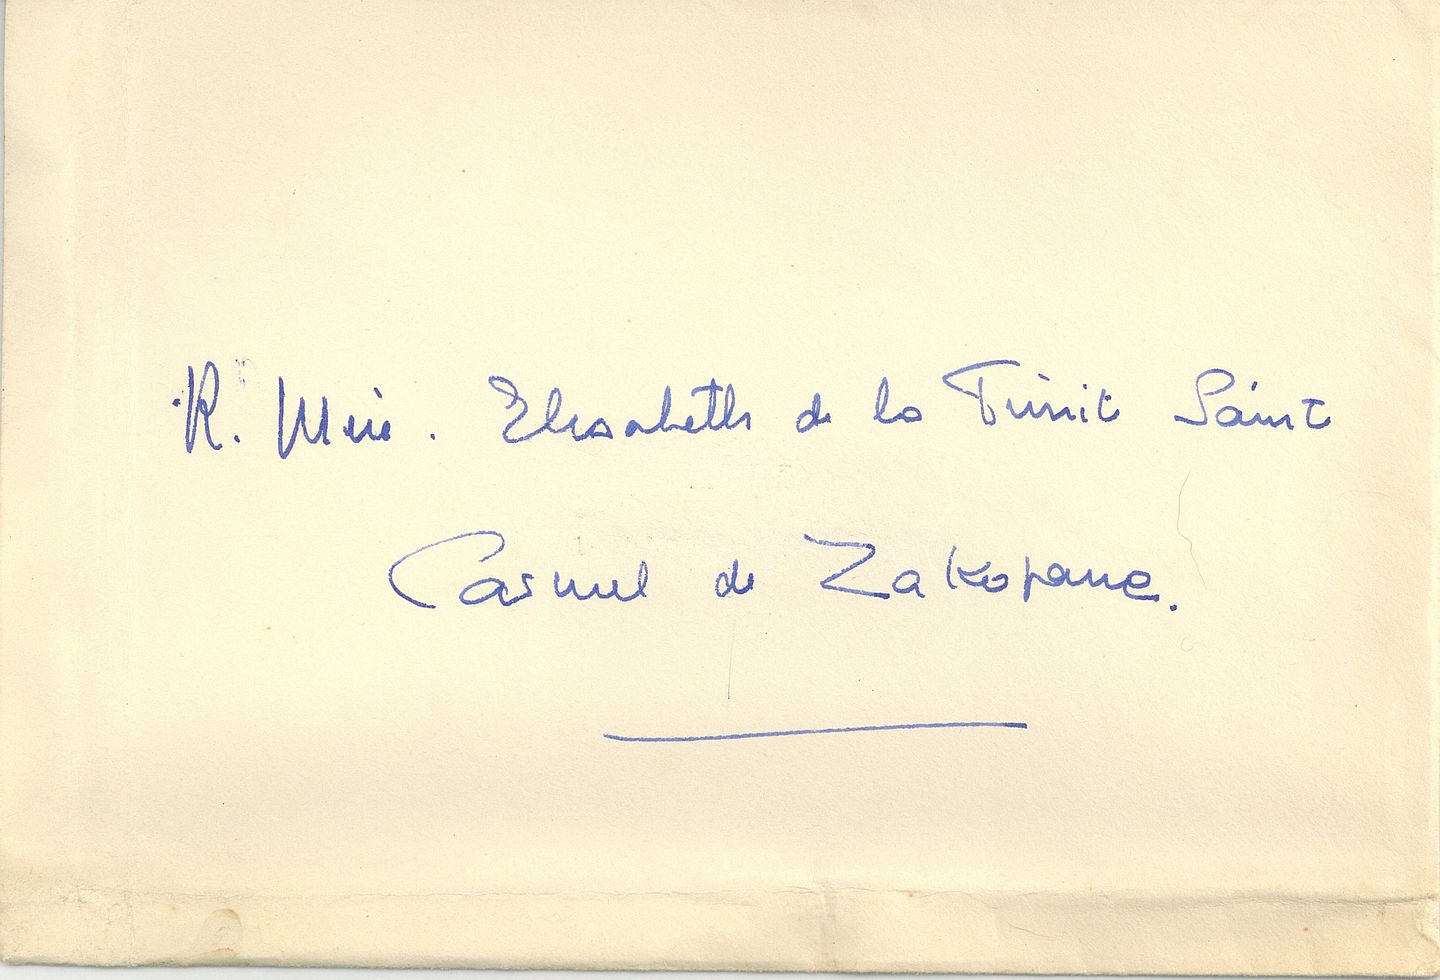 R. Mère. Elisabeth de la Trinité Sainte
Carmel de Zakopane.